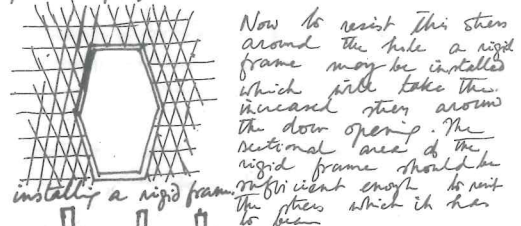 Now to resist this stress
around the hole a rigid
frame may be installed
which will take the
increased stress around
the door opening. The
sectional area of the
rigid frame should be
sufficient enough to resist
the stress which it has
to bear
installing a rigid frame.